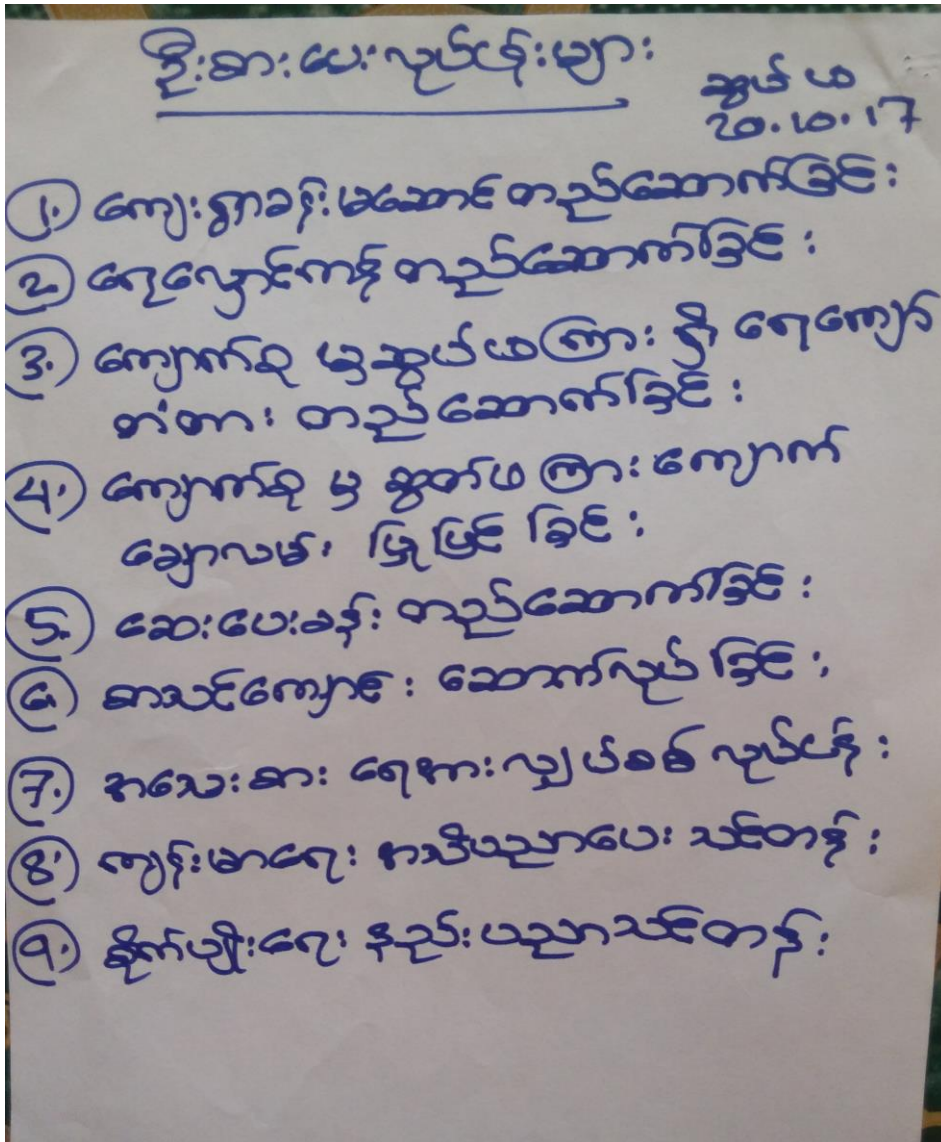 ဦးစားပေးလုပ်ငန်းများ
ဆွယ်ယ
20.10.17
1. ကျေးရွာခန်းမဆောင်တည်ဆောက်ခြင်း
2. ရေလှောင်ကန်တည်ဆောက်ခြင်း
3. ကျောက်စု မှ ဆွယ်ယကြား ရှိ ရေကျော်
တံတား တည်ဆောက်ခြင်း
4. ကျောက်စု မှ ဆွတ်ယကြား ကျောက်
ချောလမ်း ပြုပြင်ခြင်း
5. ဆေးပေးခန်း တည်ဆောက်ခြင်း
6. စာသင်ကျောင်း ဆောက်လုပ်ခြင်း
7. အသေးစား ရေအားလျှပ်စစ် လုပ်ငန်း
8. ကျန်းမာရေး အသိပညာပေး သင်တန်း
9. စိုက်ပျိုးရေး နည်းပညာသင်တန်း